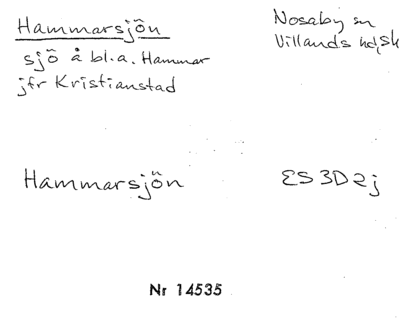 Hammarsjön
Nosaby sn
Villands hd, Sk
sjö å bl.a. Hammar
jfr Kristianstad
Hammarsjön
ES 3D 2j
Nr 14535